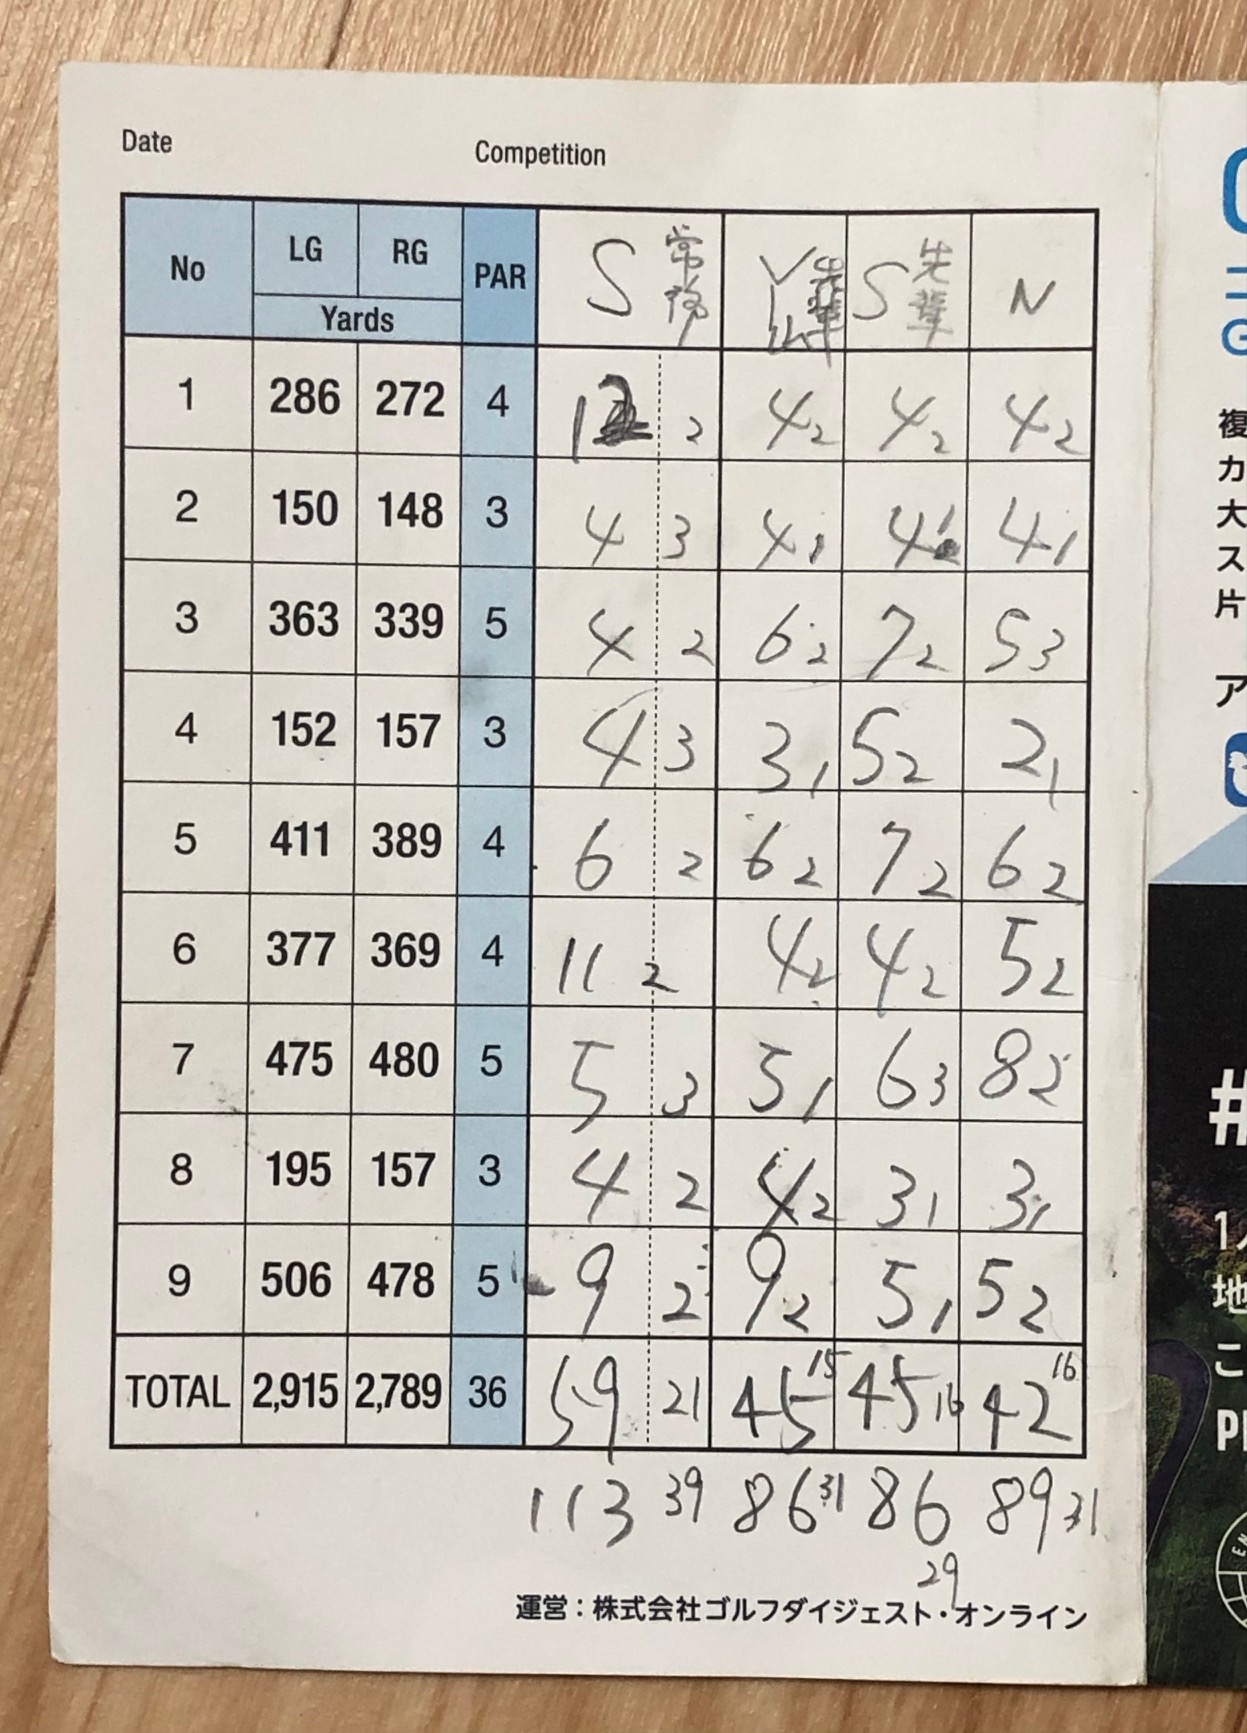 Date Competition
No LG RG PAR S 常務 Y 先輩 S 先輩 N
Yards
1 286 272 4 12 2 4 2 4 2 4 2
2 150 148 3 4 3 4 1 4 1 4 1
3 363 339 5 4 2 6 2 7 2 5 3
4 152 157 3 4 3 3 1 5 2 2 1
5 411 389 4 6 2 6 2 7 2 6 2
6 377 369 4 11 2 4 2 4 2 5 2
7 475 480 5 5 3 5 1 6 3 8 2
8 195 157 3 4 2 4 2 3 1 3 1
9 506 478 5 9 2 9 2 5 1 5 2
TOTAL 2,915 2,789 36 59 21 45 15 45 16 42 16
113 39 86 31 86 29 89 31
運営:株式会社ゴルフダイジェスト・オンライン
複
カ
大
ス
片
ア
#
地
こ